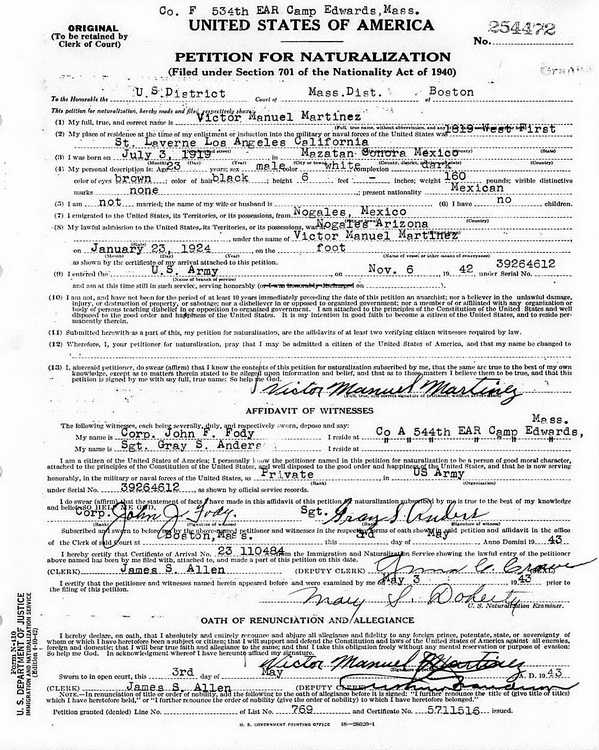 Co. F 534th EAR Camp Edwards, Mass.
ORIGINAL
(To be retained by
Clerk of Court)
UNITED STATES OF AMERICA
No. 254472
PETITION FOR NATURALIZATION
(Filed under Section 701 of the Nationality Act of 1940)
To the Honorable the U.S.District Court of Mass.Dist. at Boston
This petition for naturalization, hereby made and filed, respectfully shows:
(1) My full, true, and correct name is Victor Manuel Martinez
(Full, true name, without abbreviation, and any
(2) My place of residence at the time of my enlistment or induction into the military or naval forces of the United States was 1819 West First
St. Laverne Los Angeles California
(3) I was born on July 3, 1919 in Mazatan Sonora Mexico
(4) My personal description is: Age 23 years; sex male color white complexion dark
color of eyes brown, color of hair black, height 6 feet inches; weight 160 pounds; visible distinctive
marks none; present nationality Mexican
(5) I am not married; the name of my wife or husband is (6) I have no children.
(7) I emigrated to the United States, its Territories, or its possessions, from Nogales, Mexico
(8) My lawful admission to the United States, its Territories, or its possessions, was Nogales Arizona
under the name of Victor Manuel Martinez
on January 23, 1924 on the foot
as shown by the certificate of my arrival attached to this petition.
(9) I entered the U.S. Army on Nov. 6, 19 42 under Serial No. 39264612
and am at this time still in such service, serving honorably
(10) I am not, and have not been for the period of at least 10 years immediately preceding the date of this petition an anarchist; nor a believer in the unlawful damage,
injury, or destruction of property, or sabotage; nor a disbeliever in or opposed to organized government; nor a member of or affiliated with any organization or
body of persons teaching disbelief in or opposition to organized government. I am attached to the principles of the Constitution of the United States and well
disposed to the good order and happiness of the United States. It is my intention in good faith to become a citizen of the United States, and to reside per-
manently therein.
(11) Submitted herewith as a part of this, my petition for naturalization, are the affidavits of at least two verifying citizen witnesses required by law.
(12) Wherefore, I, your petitioner for naturalization, pray that I may be admitted a citizen of the United States of America, and that my name be changed to
(13) I, aforesaid petitioner, do swear (affirm) that I know the contents of this petition for naturalization subscribed by me, that the same are true to the best of my own
knowledge, except as to matters therein stated to be alleged upon information and belief, and that as to those matters I believe them to be true, and that this
petition is signed by me with my full, true name: So help me God.
Victor Manuel Martinez
AFFIDAVIT OF WITNESSES
The following witnesses, each being severally, duly, and respectively sworn, depose and say:
Mass.
My name is Corp. John F. Fody I reside at Co A 544th EAR Camp Edwards,
My name is Sgt. Gray S. Anders I reside at " " " " "
I am a citizen of the United States of America; I personally know the petitioner named in this petition for naturalization to be a person of good moral character,
attached to the principles of the Constitution of the United States, and well disposed to the good order and happiness of the United States, and that he is now serving
honorably, in the military or naval forces of the United States, as Private in US Army
under Serial No. 39264612 as shown by official service records.
I do swear (affirm) that the statement of facts I have made in this affidavit of this petition for naturalization subscribed by me is true to the best of my knowledge
and belief: SO HELP ME GOD.
Corp. John J. Fody. Sgt. Gray S. Anders
Subscribed and sworn to before me by above-named petitioner and witnesses in the respective forms of oath shown in said petition and affidavit in the office
of the Clerk of said Court at Boston, Mass. this 3rd day of May Anno Domini 19 43
I hereby certify that Certificate of Arrival No. 23 110484 from the Immigration and Naturalization Service showing the lawful entry of the petitioner
above named has been by me filed with, attached to, and made a part of this petition on this date.
(CLERK) James S. Allen (DEPUTY CLERK)
I certify that the petitioner and witnesses named herein appeared before and were examined by me May 3, 43 prior to
the filing of this petition.
Mary S. Doherty
U. S. Naturalization Examiner.
OATH OF RENUNCIATION AND ALLEGIANCE
I hereby declare, on oath, that I absolutely and entirely renounce and abjure all allegiance and fidelity to any foreign prince, potentate, state, or sovereignty of
whom or which I have heretofore been a subject or citizen; that I will support and defend the Constitution and laws of the United States of America against all enemies,
foreign and domestic; that I will bear true faith and allegiance to the same; and that I take this obligation freely without any mental reservation or purpose of evasion:
So help me God. In acknowledgment whereof I have hereunto affixed my signature.
Victor Manuel Martinez
Sworn to in open court, this 3rd day of May A. D. 19 43
(CLERK) James S. Allen (DEPUTY CLERK)
NOTE.—In renunciation of title or order of nobility, add the following to the oath of allegiance before it is signed: "I further renounce the title of (give title of titles)
which I have heretofore held," or "I further renounce the order of nobility (give the order of nobility) to which I have heretofore belonged."
Petition granted (denied) Line No. of List No. 769 and Certificate No. 5711516 issued.
U. S. GOVERNMENT PRINTING OFFICE
Form N-410
U. S. DEPARTMENT OF JUSTICE
IMMIGRATION AND NATURALIZATION SERVICE